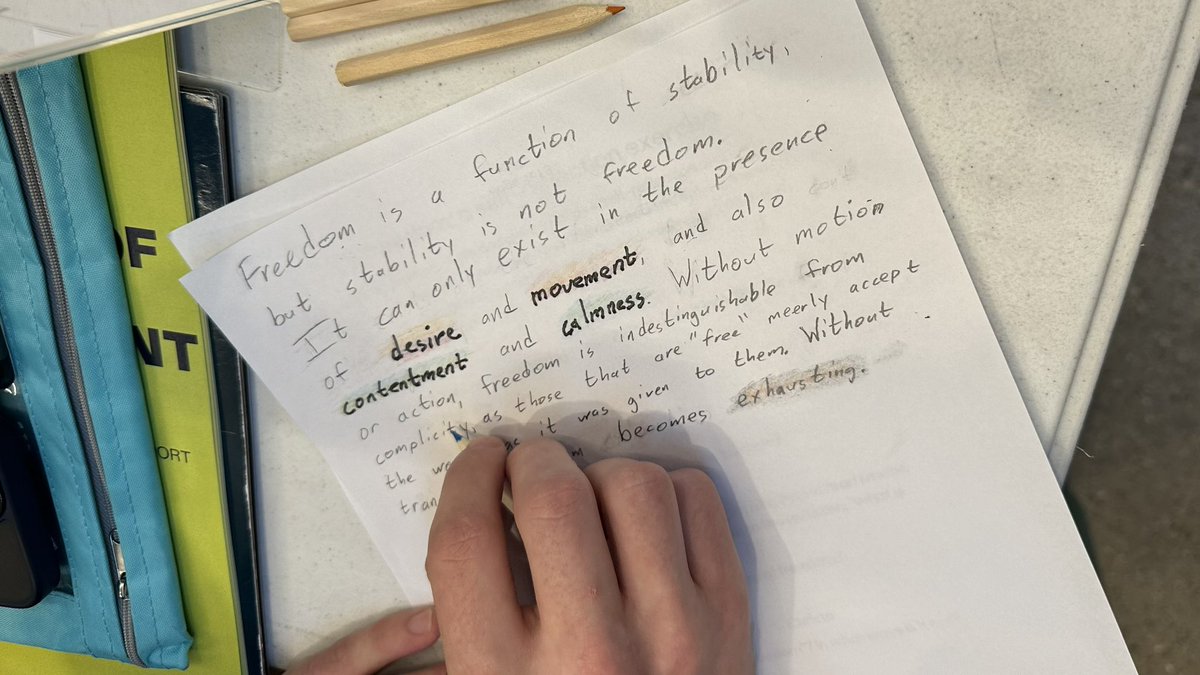 Freedom is a function of stability,
but stability is not freedom.
It can only exist in the presence
of desire and movement, and also
contentment and calmness. Without motion
or action, freedom is indestinguishable from
complicity, as those that are "free" meerly accept
the it was given to them. Without
becomes exhausting.
OF
NT
ORT